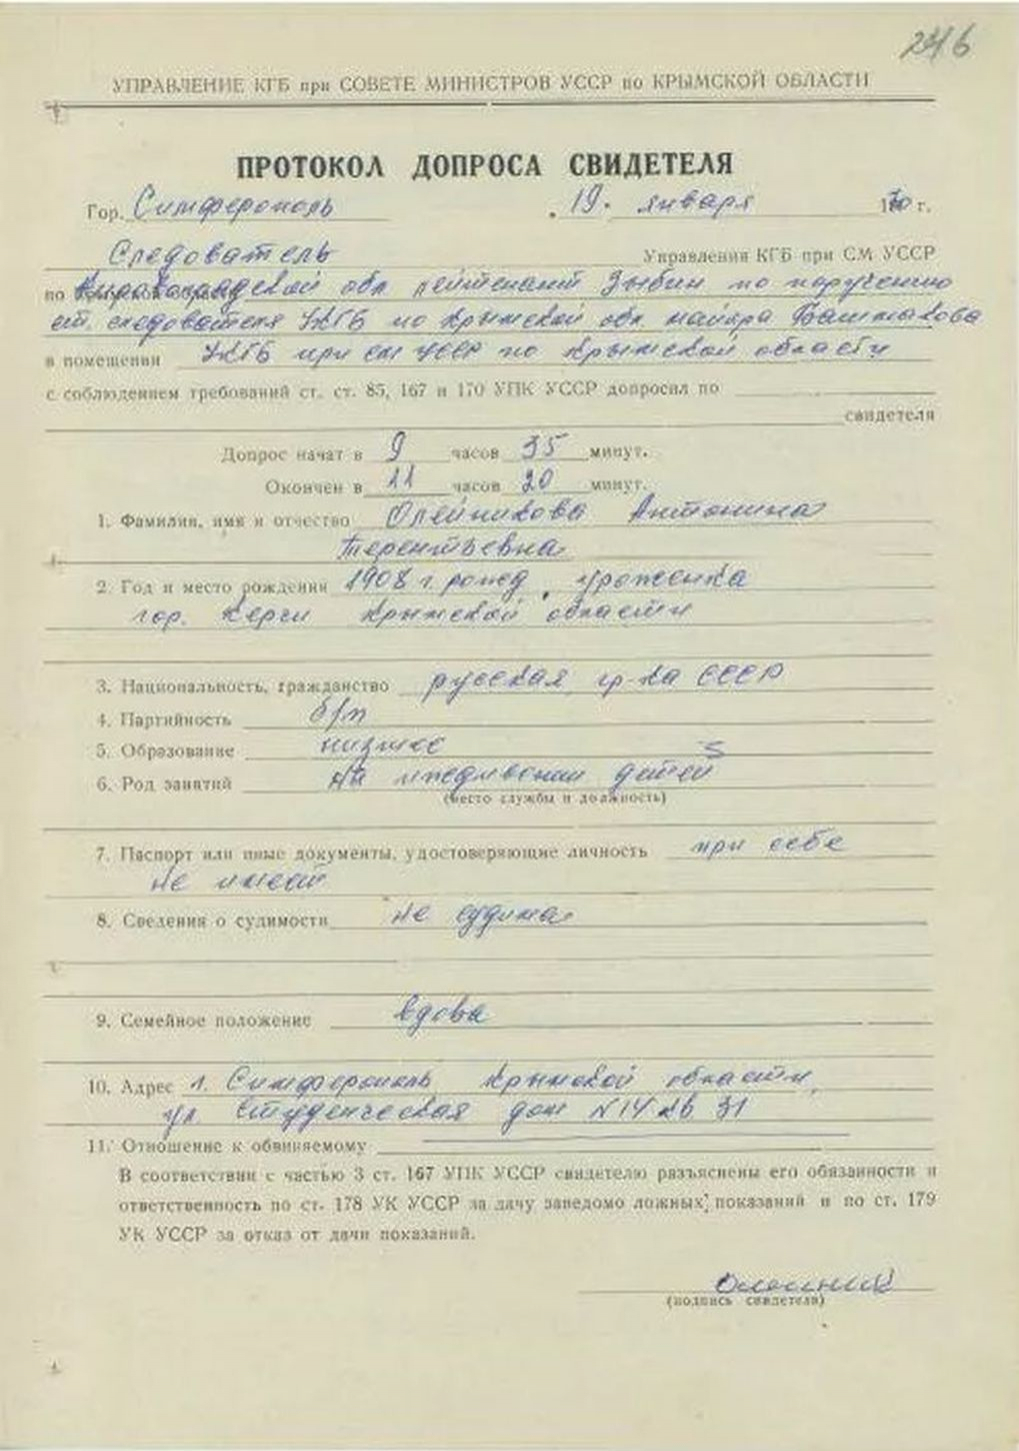 246
УПРАВЛЕНИЕ КГБ при СОВЕТЕ МИНИСТРОВ УССР по КРЫМСКОЙ ОБЛАСТИ
ПРОТОКОЛ ДОПРОСА СВИДЕТЕЛЯ
Гор. Симферополь „ 19. января 1970 г.
Следователь Управления КГБ при СМ УССР
по Кировоградской обл лейтенант Зыбин по поручению
ст. следователя УКГБ по Крымской обл. майора Башмакова
в помещении УКГБ при СМ УССР по Крымской области
с соблюдением требований ст. ст. 85, 167 и 170 УПК УССР допросил по
свидетеля
Допрос начат в 9 часов 35 минут.
Окончен в 11 часов 20 минут.
1. Фамилия, имя и отчество Олейникова Антонина
Терентьевна
2. Год и место рождения 1908 г. рожд, уроженка
гор. Керчи Крымской области
3. Национальность, гражданство русская, гр-ка СССР
4. Партийность б/п
5. Образование низшее
6. Род занятий на иждивении детей
(место службы и должность)
7. Паспорт или иные документы, удостоверяющие личность при себе
не имеет
8. Сведения о судимости не судима
9. Семейное положение вдова
10. Адрес г. Симферополь Крымской области,
ул. Студенческая дом N 14 кв 31
11. Отношение к обвиняемому
В соответствии с частью 3 ст. 167 УПК УССР свидетелю разъяснены его обязанности и
ответственность по ст. 178 УК УССР за дачу заведомо ложных показаний и по ст. 179
УК УССР за отказ от дачи показаний.
(подпись свидетеля)